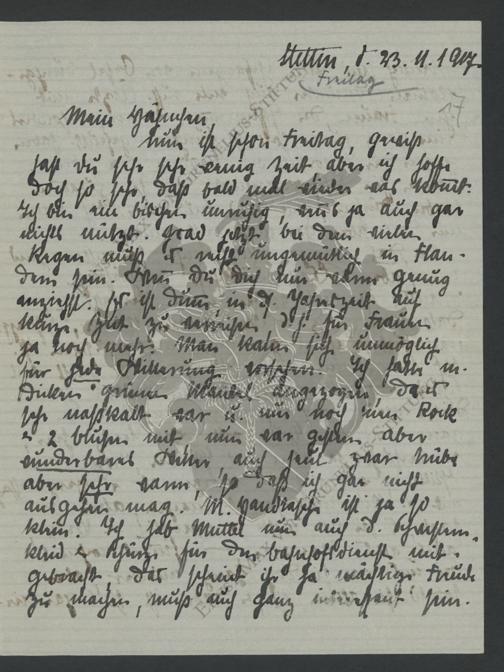 Stettin, d. 23. 11. 1917.
Freitag
17
Mein Hähnchen,
nun ist schon Freitag, gewiß
hast du sehr sehr wenig Zeit aber ich hoffe
doch so sehr, daß bald mal wieder was kommt.
Ich bin ein bischen unruhig, was ja auch gar
nichts nützt. Grad jetzt bei dem vielen
Regen muß es recht ungemütlich in Flan-
dern sein. Wenn du dich nur warm genug
anziehst. Es ist dumm in d. Jahreszeit auf
kurze Zeit zu verreisen d. h. für Frauen
ja noch mehr. Man kann sich unmöglich
für jede Witterung vorsehen. Ich hatte m.
dicken grünen Mantel angezogen, da es
sehr naßkalt war u. nur noch einen Rock
u 2 Blusen mit nun war gestern aber
wunderbares Wetter, auch heut zwar trübe
aber sehr warm, so daß ich gar nicht
ausgehen mag, m. Handtasche ist ja so
klein. Ich hab Mutter nun auch d. Schwestern-
kleid u Schürze für den Bahnhofsdienst mit-
gebracht. Das scheint ihr ja mächtige Freude
zu machen, muß auch ganz interessant sein.